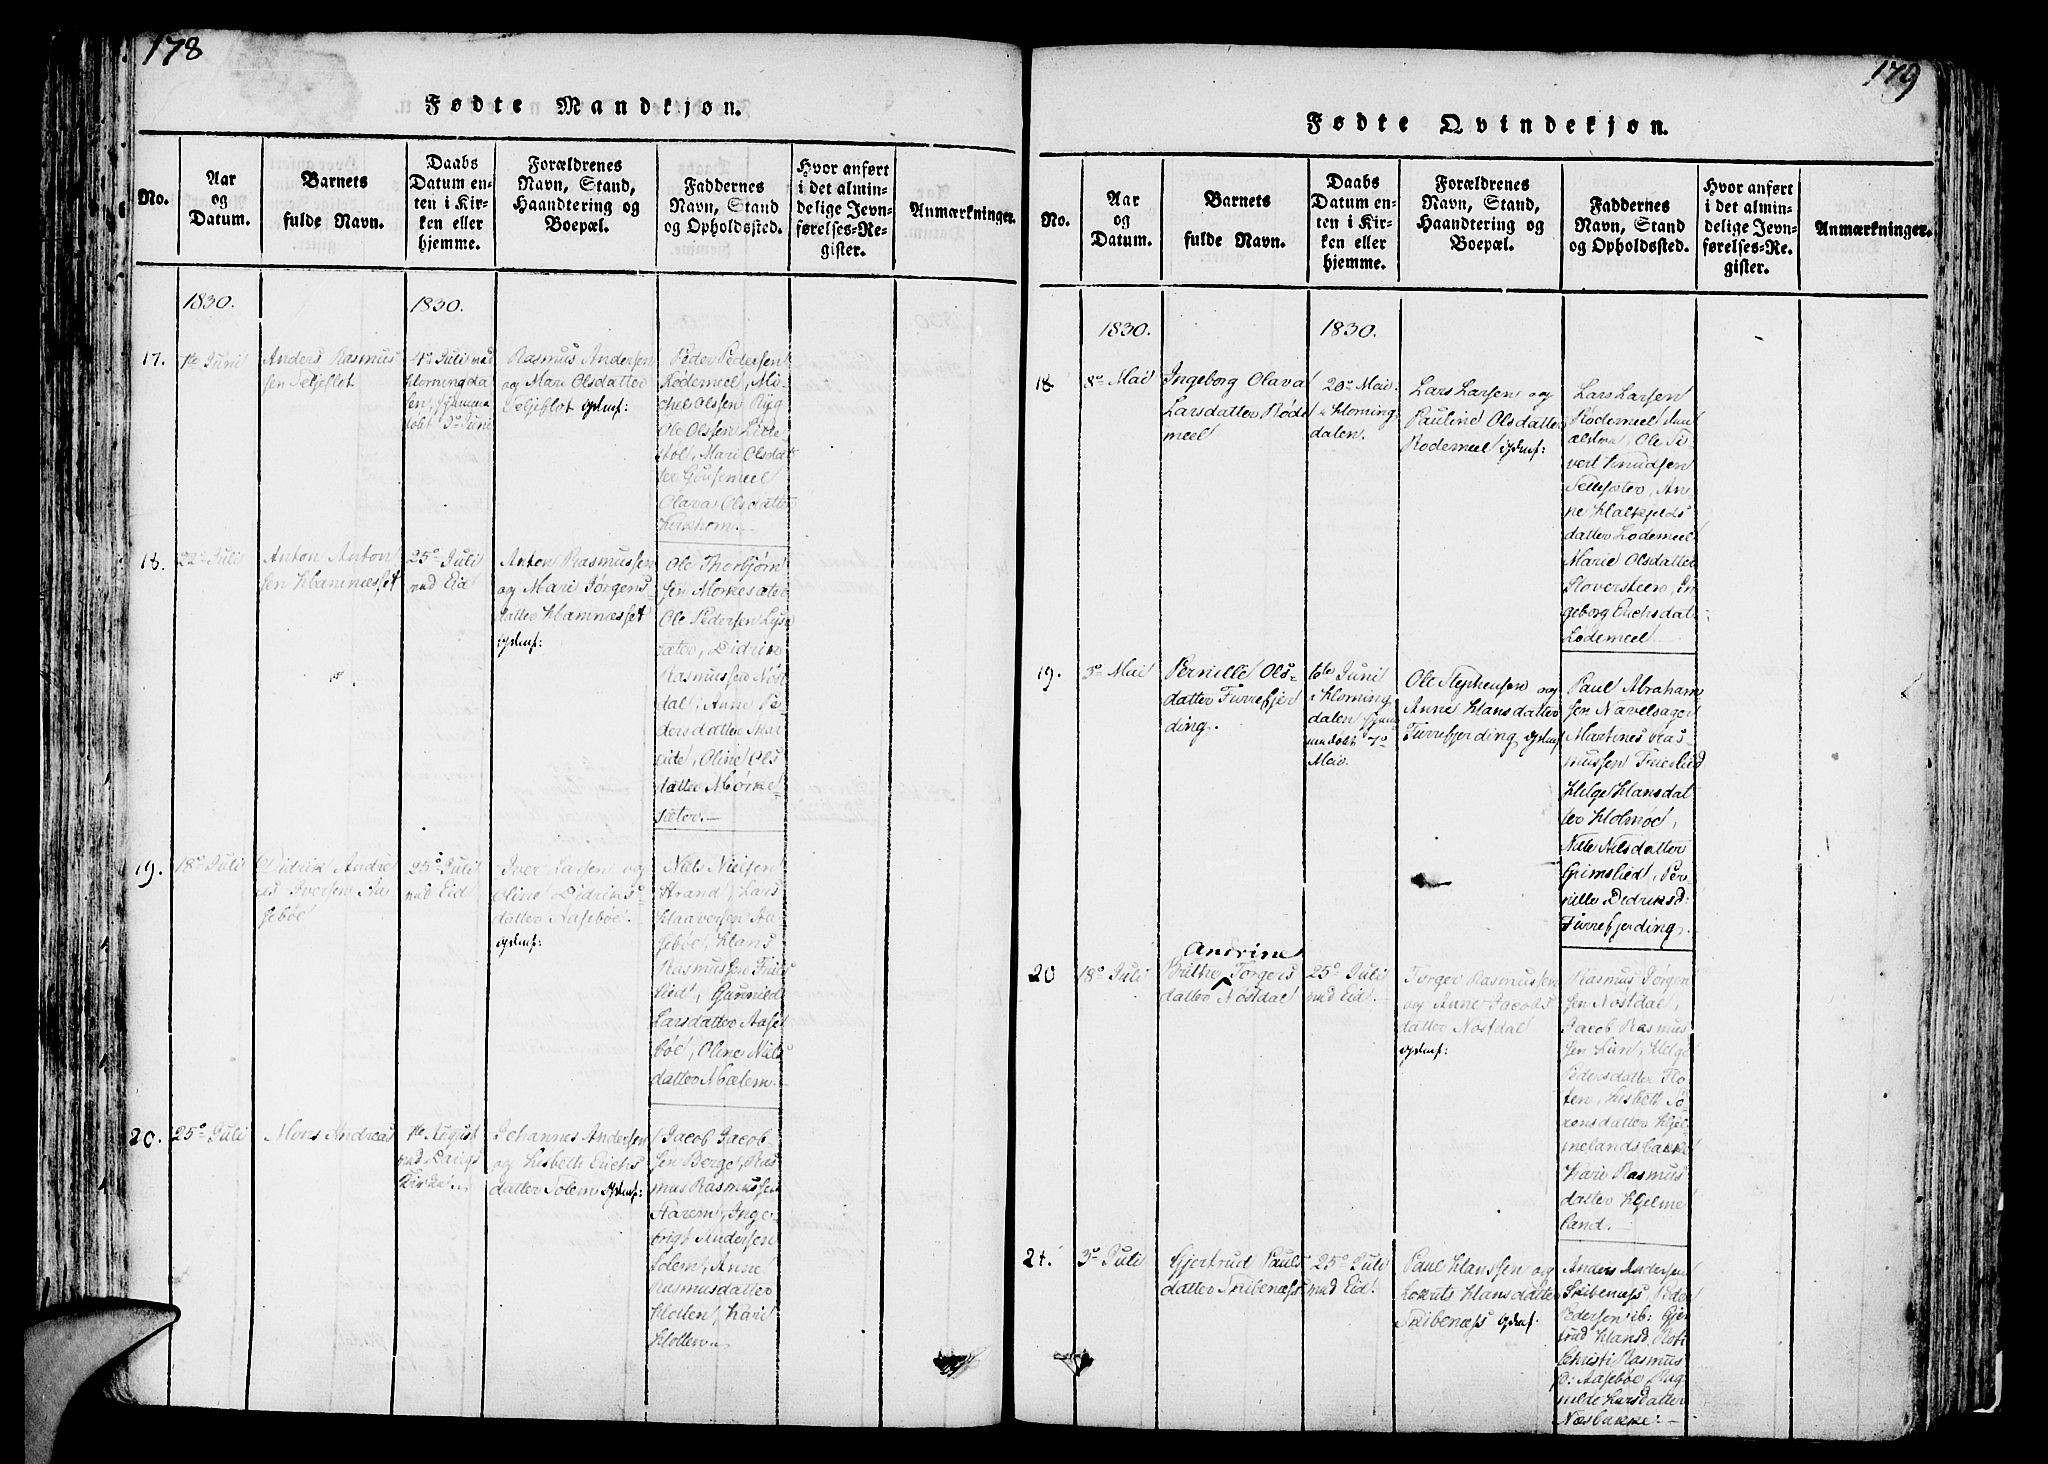 178
Fødte Mandkjøn.
No.
Aar
og
Datum.
Barnets
fulde Navn.
Daabs
Datum en-
ten i Kir-
ken eller
hjemme.
Forældrenes
Navn, Stand,
Haandtering og
Boepæl.
Faddernes
Navn, Stand
og Opholdssted.
Hvor anført
i det almin-
delige Jevn-
førelses-Re-
gister.
Anmærkninger.
1830.
1830.
17.
1te Juni
Anders Rasmus
sen Seljeflot
4de Juli ved
Horningda
len,
døbt 3de Juni
Rasmus Andersen
og Mari Olsdatter
Seljeflot
Peder Pedersen
Lødemeel, Mi-
chel Olssen Ryg
Ole Olssen Litle-
støl, Mari Olsdat
ter Gousemeel
Olava Olsdatter
Kirkhorn.
18.
22de Juli
Anton Anton
sen Hamnesset
25de Juli
ved Eid
Anton Rasmussen
og Mari Jørgens
datter Hamnesset
Ole Thorbjørn
sen Morkesæter
Ole Pedersen Lyse
sæter, Didrik
Rasmussen Nøst
dal, Anne Pe
dersdatter Mar
eide, Oline Ols
datter Mørke-
sæter.
19.
18de Juli
Didrik Andre
as Iversen Aa
sebøe
25de Juli
ved Eid
Iver Larsen og
Oline Didriks
datter Aasebøe.
Niels Nielsen
Strand, Lars
Haaversen Aa
sebøe, Hans
Rasmussen Friis
lied, Gunnied
Larsdatter Aase
bøe, Oline Niels
datter Mælem.
20.
25de Juli
Mons Andreas
1te August
ved Davigs
Kirke
Johannes Andersen
og Lisbeth Erichs
datter Solem
Jacob Jacob-
sen Berge, Ras
mus Rasmussen
Starem, Inge-
brigt Andersen
Solem, Anne
Rasmusdatter
Hotten, Kari
Hotten
179
Fødte Qvindekjøn.
No.
Aar
og
Datum.
Barnets
fulde Navn.
Daabs
Datum en-
ten i Kir-
ken eller
hjemme.
Forældrenes
Navn, Stand,
Haandtering og
Boepæl.
Faddernes
Navn, Stand
og Opholdssted.
Hvor anført
i det almin-
delige Jevn-
førelses-Re-
gister.
Anmærkninger.
1830.
1830.
18
8de Mai
Ingeborg Olava
Larsdatter Røde
meel
20de Mai
i Horning
dalen.
Lars Larsen og
Pauline Olsdatter
Rodemeel
Lars Larsen
Rødemeel
Ole Si
vert Knudsen
Sellesæter, An-
ne Halkjelds
datter Lødemeel
Marie Olsdatter
Støversteen, In
geborg Erichsdat
Lødemeel
19.
5de Mai
Pernille Ols-
datter Furrefjer
ding.
6te Juni
i Horning
dalen
døbt 7de
Mai.
Ole Stephensen og
Anne Hansdatter
Furrefjerding
Paul Abraham
sen Navelsager
Martines Ras-
mussen Friislied
Helge Hansdat
ter Holmøe,
Nille Nilsdatter
Grimslied, Per
nille Dedriksd.
Furrefjerding.
20
18de Juli
Andrine
Brithe Torgers
datter Nøstdal
25de Juli
ved Eid.
Torger Rasmussen
og Anne Jacobs
datter Nostdal
Rasmus Jørgen
sen Nøstdal,
Jacob Rasmus
sen Lien, Helge
Pedersdatter Flo
ten, Lisbeth Sø-
rensdatter Hjel
melandsbakke
Kari Rasmus
datter Hjelme
land.
21.
3de Juli
Gjertrud Pauls
datter Skibenæss
25de Juli
ved Eid.
Paul Hanssen og
Hansdatter
Skibenæss
Anders Andersen
Skibenæss, Peder
Pedersen ib: Gjer
trud Hansd.
Christi Rasmus
D: Aasebøe, Rag
nilde Larsdatter
Næsbakke.